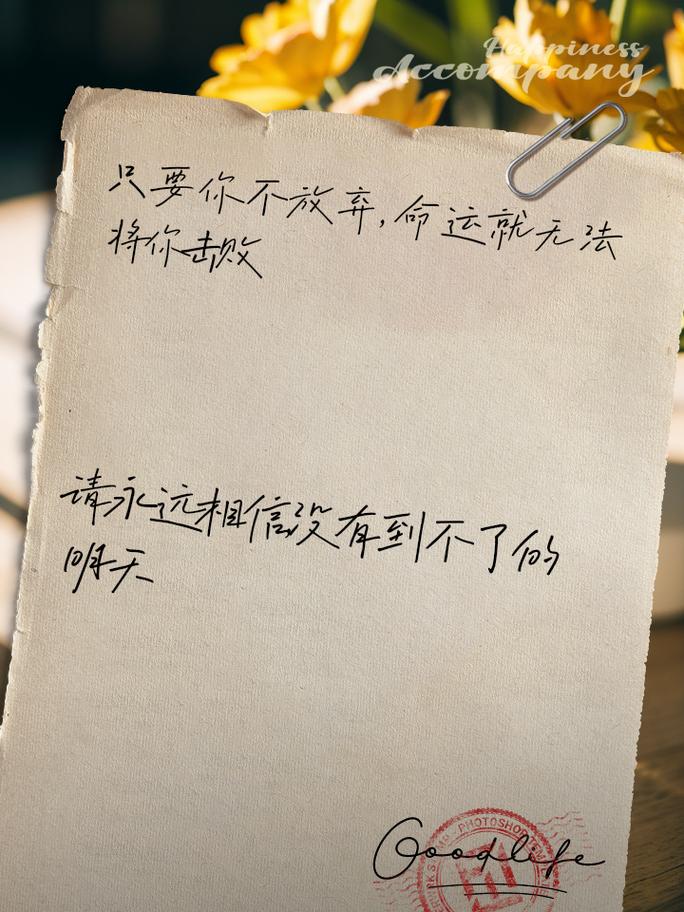 Happiness
Accompany
只要你不放弃,命运就无法
将你击败
请永远相信没有到不了的
明天
PHOTOSHOP
Goodlife